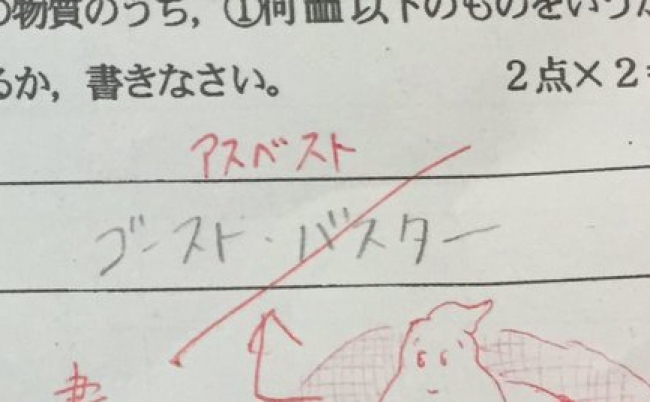 の物質のうち，①何㎜以下のものをいうか
るか，書きなさい。 2点×2
アスベスト
ゴースト・バスター